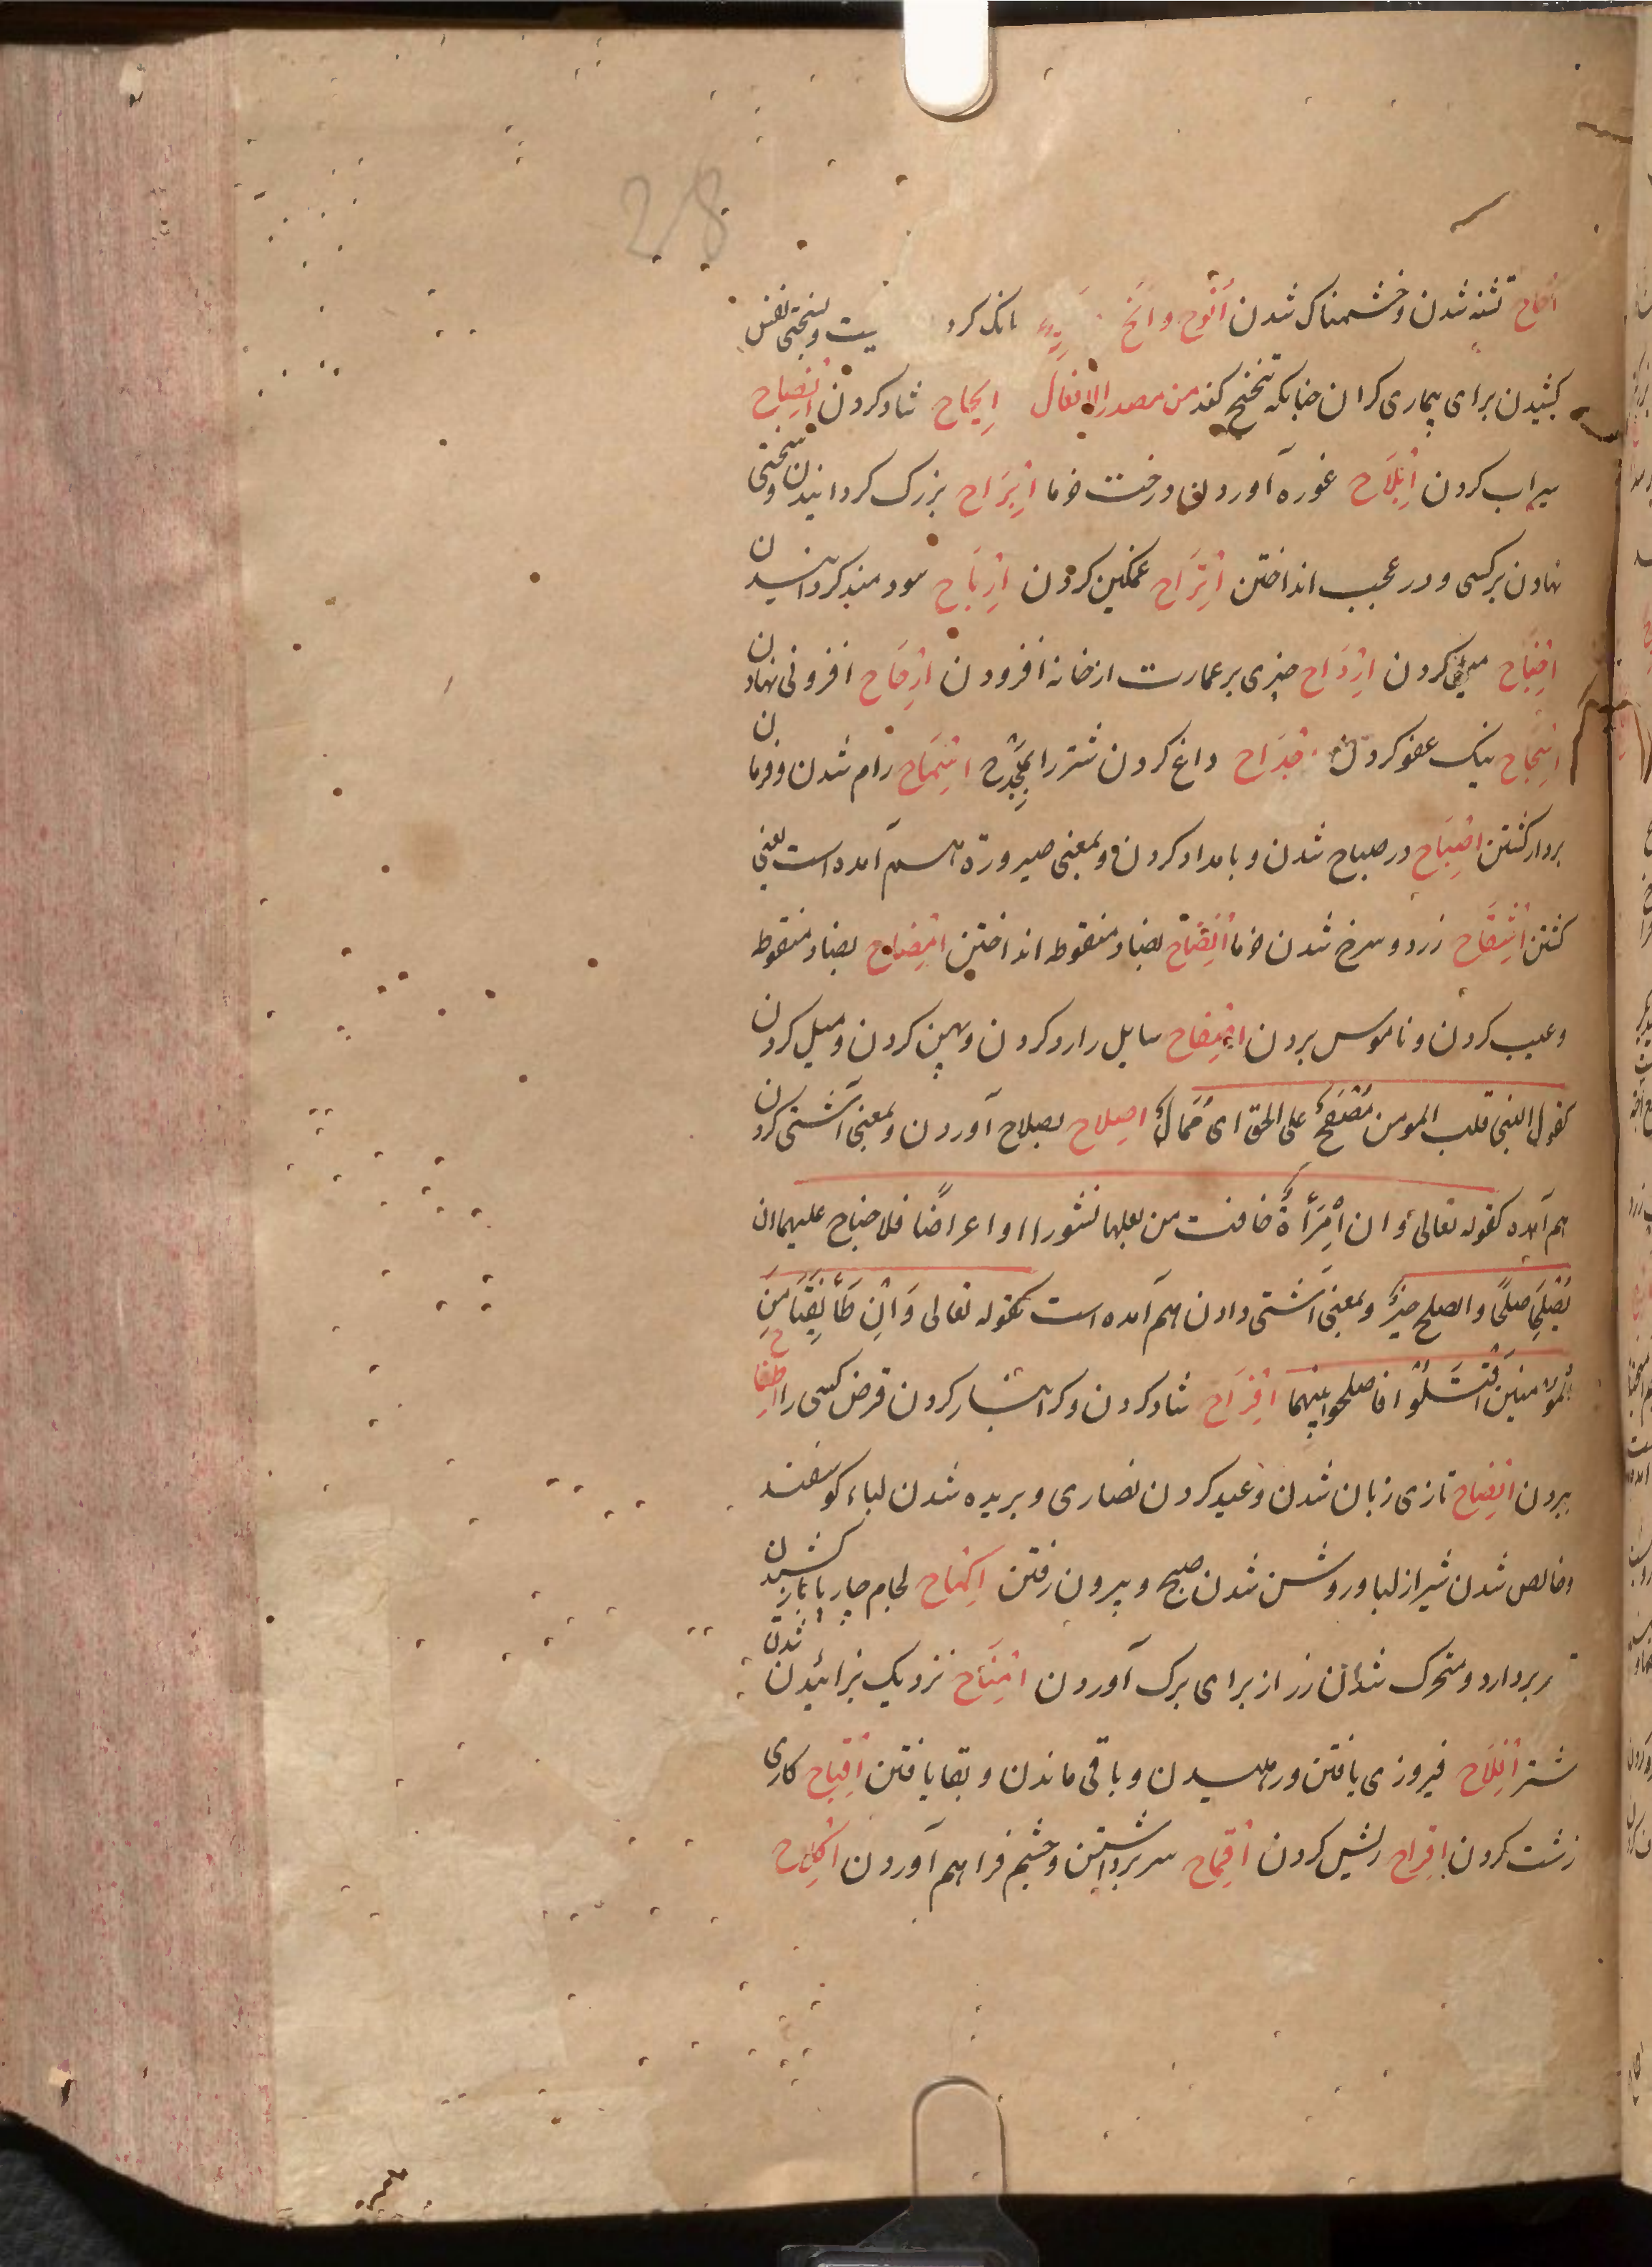 28
اُحاح تشنه شدن و خشمناک شدن اُنُوح و اَنح بانک کرد یت و بسختی نفس
کشیدن برای بیماری کران چنانکه تنحنح کند من مصدر الافعال اِبجاح شاد کردن اِنصِاح
سیراب کردن اِبْلَاح غوره آوردن درخت خرما اِبْرَاح بزرک کردانیدن و سختی
نهادن برکسی و در عجب انداختن اِتْرَاح غمکین کردن اِرْبَاح سودمند کردانیدن
کردن اِرْدَاح چیزی بر عمارت از خانه افزودن اِرْجَاح افزونی نهادن
اِسْجَاح نیک عفو کردن داغ کردن شتر را بمِجْدَح اِسْمَاح رام شدن و فرمان
بردار کشتن اِصْبَاح در صباح شدن و بامداد کردن و بمعنی صیرورة هم آمده است یعنی
کشتن اِشْقَاح زرد و سرخ شدن خرما بضاد منقوطه انداختن اِفْضَاح بضاد منقوطه
و عیب کردن و ناموس بردن اِصْفَاح سایل را رد کردن و پهن کردن و میل کردن
کقول النبی قلب المومن مُصْفَحٌ علی الحق ای مُمَالٌ اِصلاح بصلاح آوردن و بمعنی آشتی کردن
هم آمده کقوله تعالی وان اِمْرَأةٌ خافت من بعلها نشورا او اعراضًا فلا جناح علیهما ان
یُصْلِحَا صلحًا والصلح خیرٌ و بمعنی آشتی دادن هم آمده است کقوله تعالی وَاِنْ طَائِفَتَا مِنَ
المُؤمنین اقْتَتَلُوا فاصلحوا بینهما اِفْرَاح شاد کردن و کرانبار کردن قرض کسی را اِطْفاح
بردن اِفْصَاح تازی زبان شدن و عید کردن نصاری و بریده شدن لباء کوسفند
و خالص شدن شیر از لبا و روشن شدن صبح و بیرون رفتن اِکْمَاح لجام چارپا باز کشیدن
سر بردارد و متحرک شدن رز از برای برک آوردن اِمْنَاح نزدیک بزائیدن شدن
شتر اِفْلَاح فیروزی یافتن و رهیدن و باقی ماندن و بقا یافتن اِقْبَاح کاری
زشت کردن اِقْرَاح ریش کردن اِقْمَاح سر برداشتن و چشم فراهم آوردن اِکْلَاح